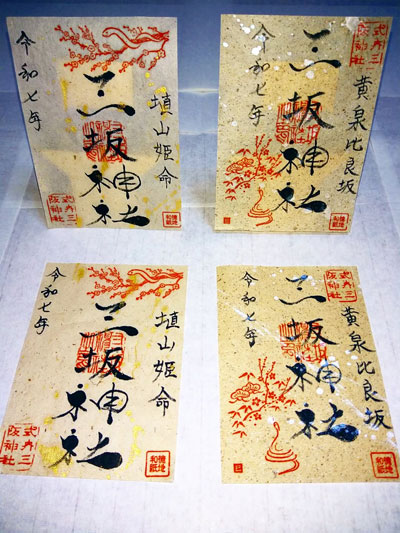 埴山姫命
三坂神社
令和七年
式内三
阪神社
黄泉比良坂
三坂神社
令和七年
式内三
阪神社
埴山姫命
三坂神社
令和七年
式内三
阪神社
黄泉比良坂
三坂神社
令和七年
式内三
阪神社